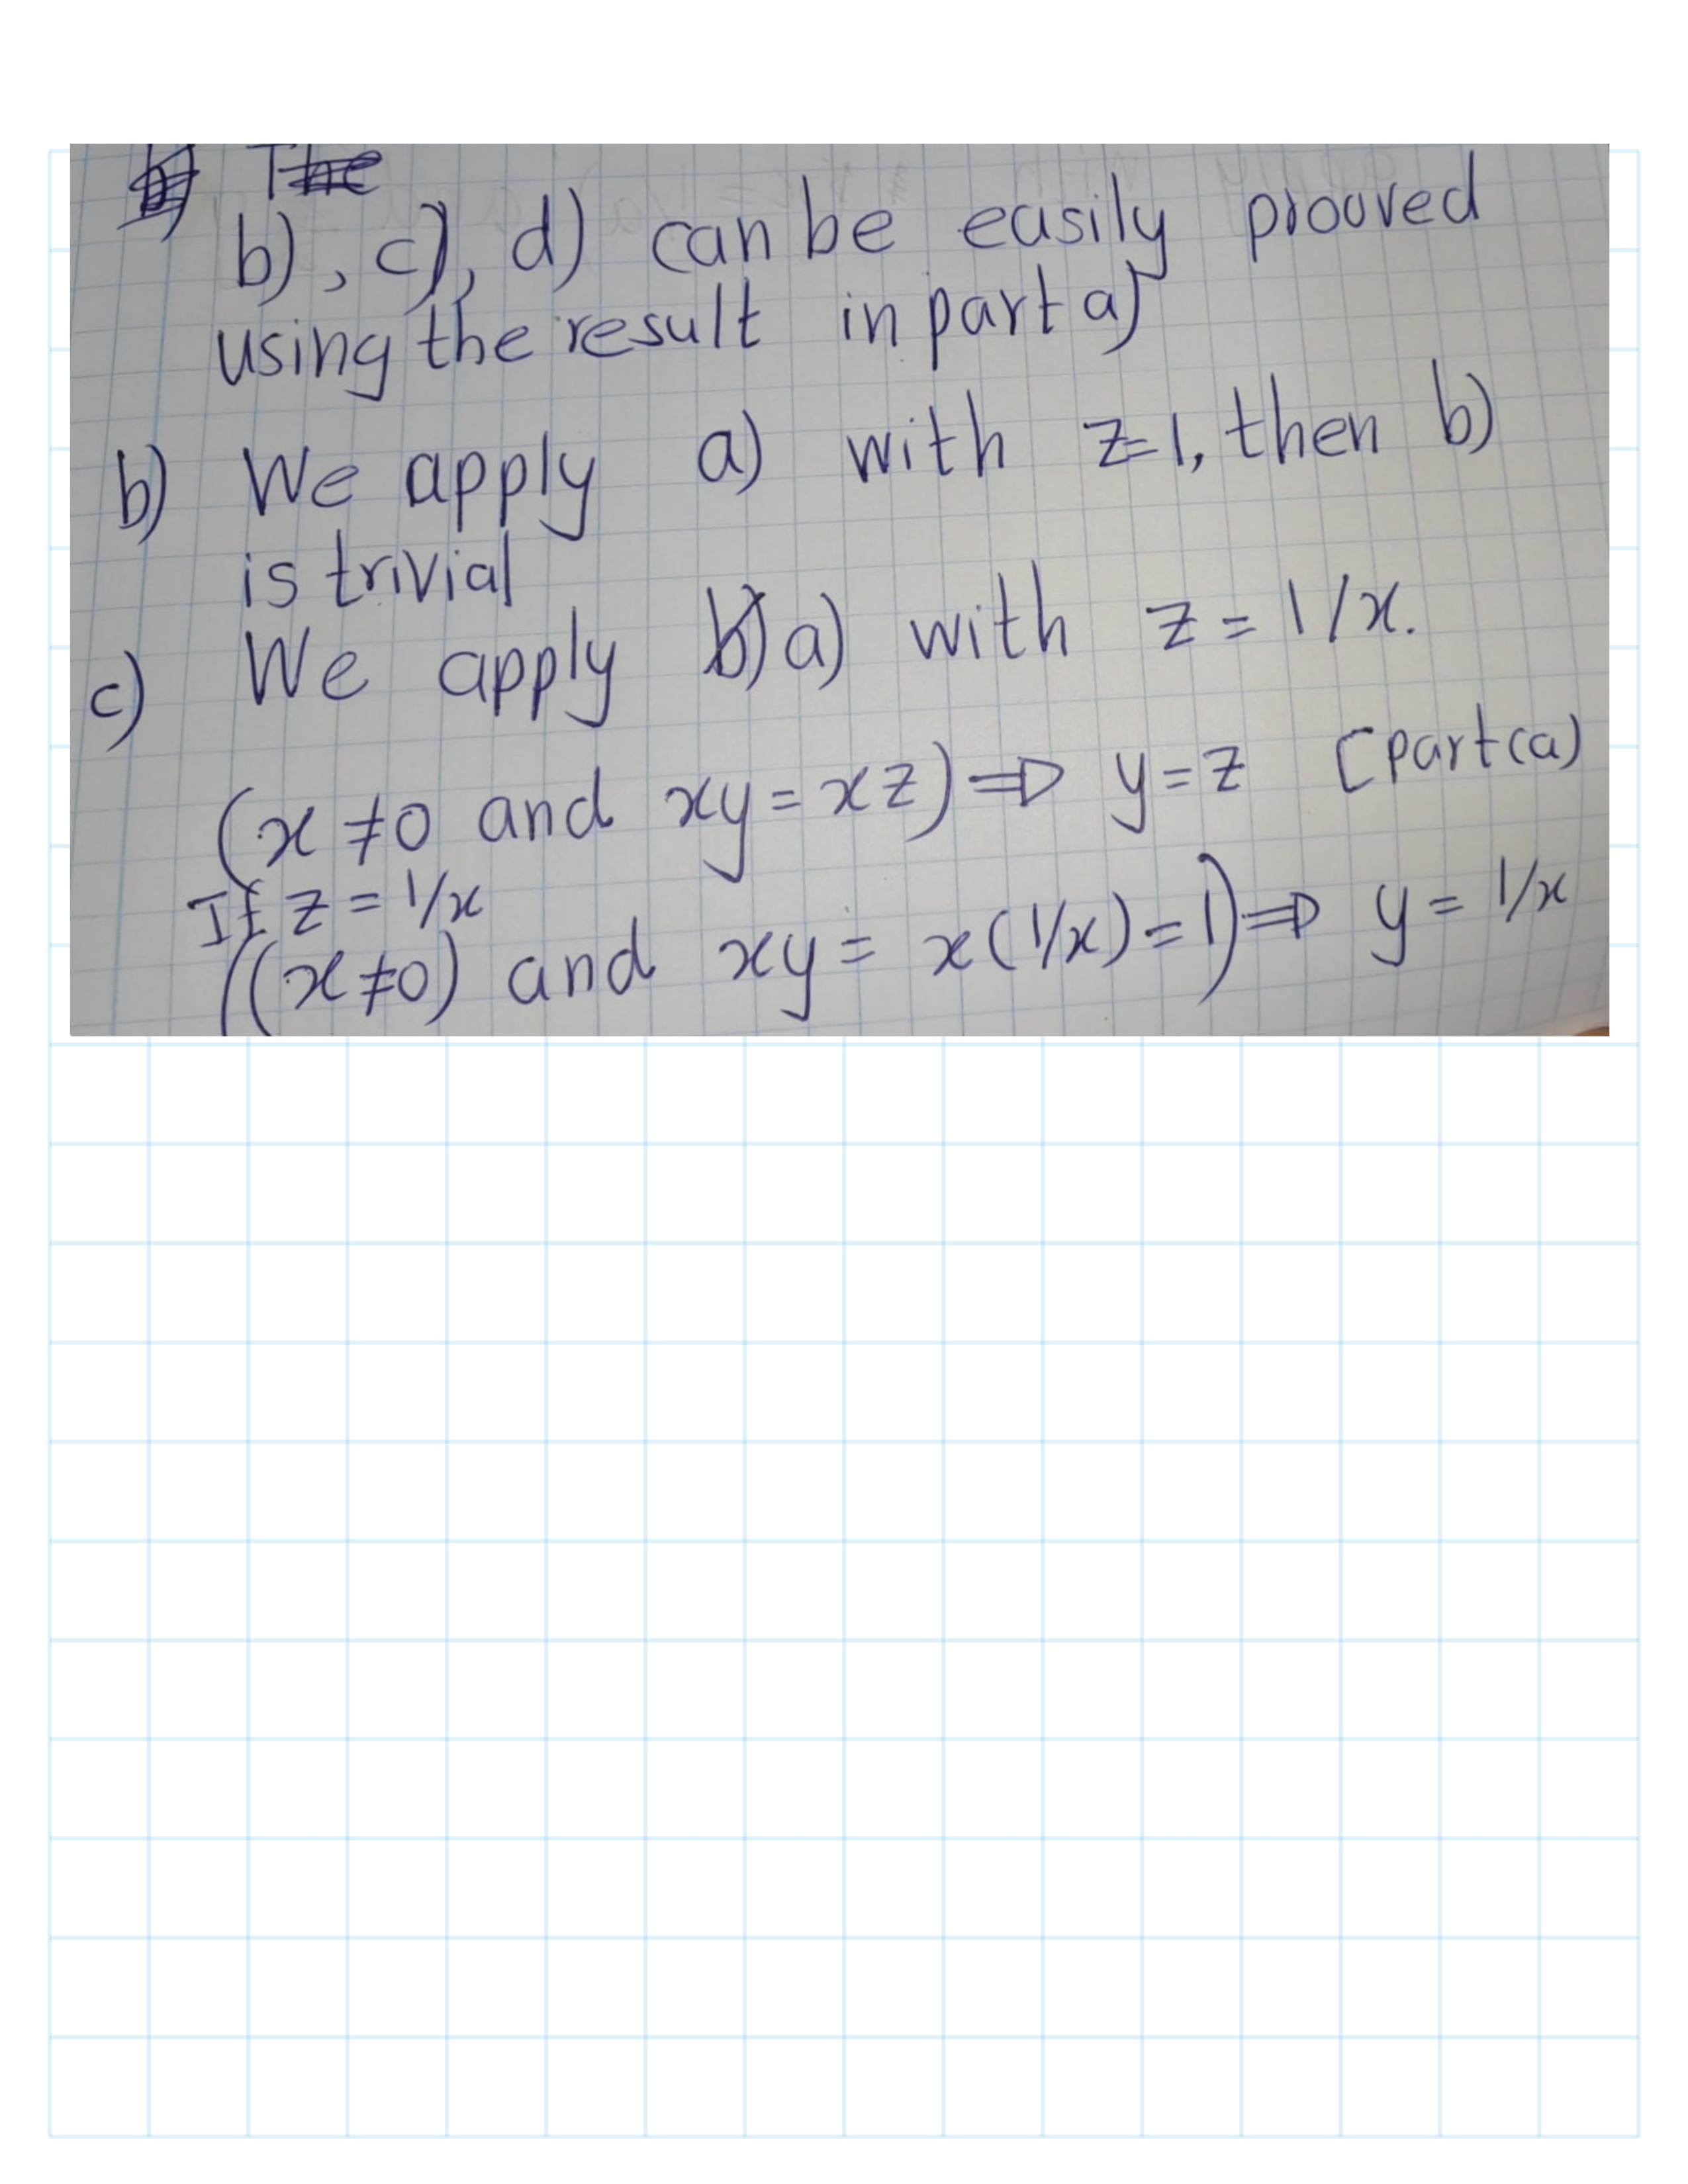 b) The
b), c), d) can be easily prooved
using the result in part a)
b) We apply a) with z=1, then b)
is trivial
c) We apply b) a) with z = 1/x.
(x ≠ 0 and xy = xz) ⇒ y = z [part(a)
If z = 1/x
((x ≠ 0) and xy = x(1/x) = 1) ⇒ y = 1/x